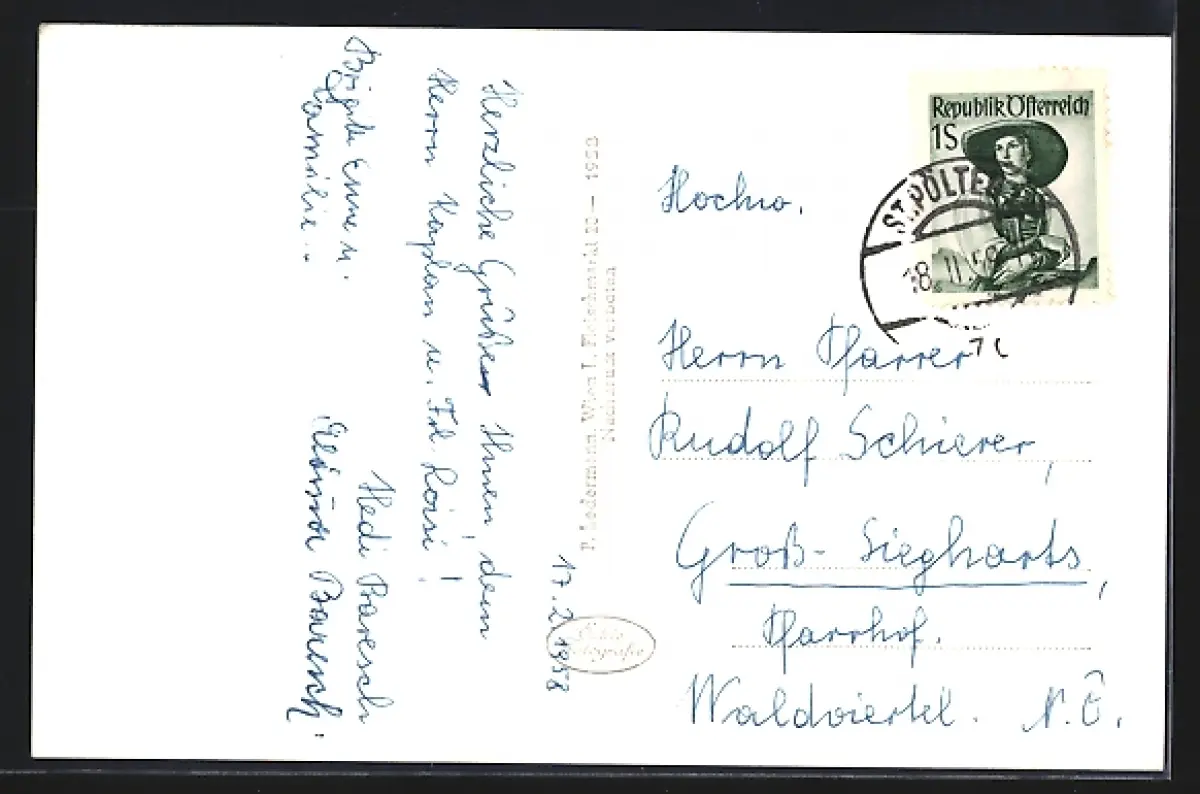 17.2.1958
Herzliche Grüße Ihnen dem
Herrn Kaplan u. Frl Loisi!
Hedi Baresch
Baresch
Brigitte Enne u.
Familie..
P. Ledermann, Wien I., Fleischmarkt 20 — 1953
Nachdruck verboten
Echte
Fotografie
Republik Österreich
1S
ST. PÖLTEN
18. II. 58
Hochw.
Herrn Pfarrer
Rudolf Schierer,
Groß-Siegharts,
Pfarrhof.
Waldviertel. N.Ö.